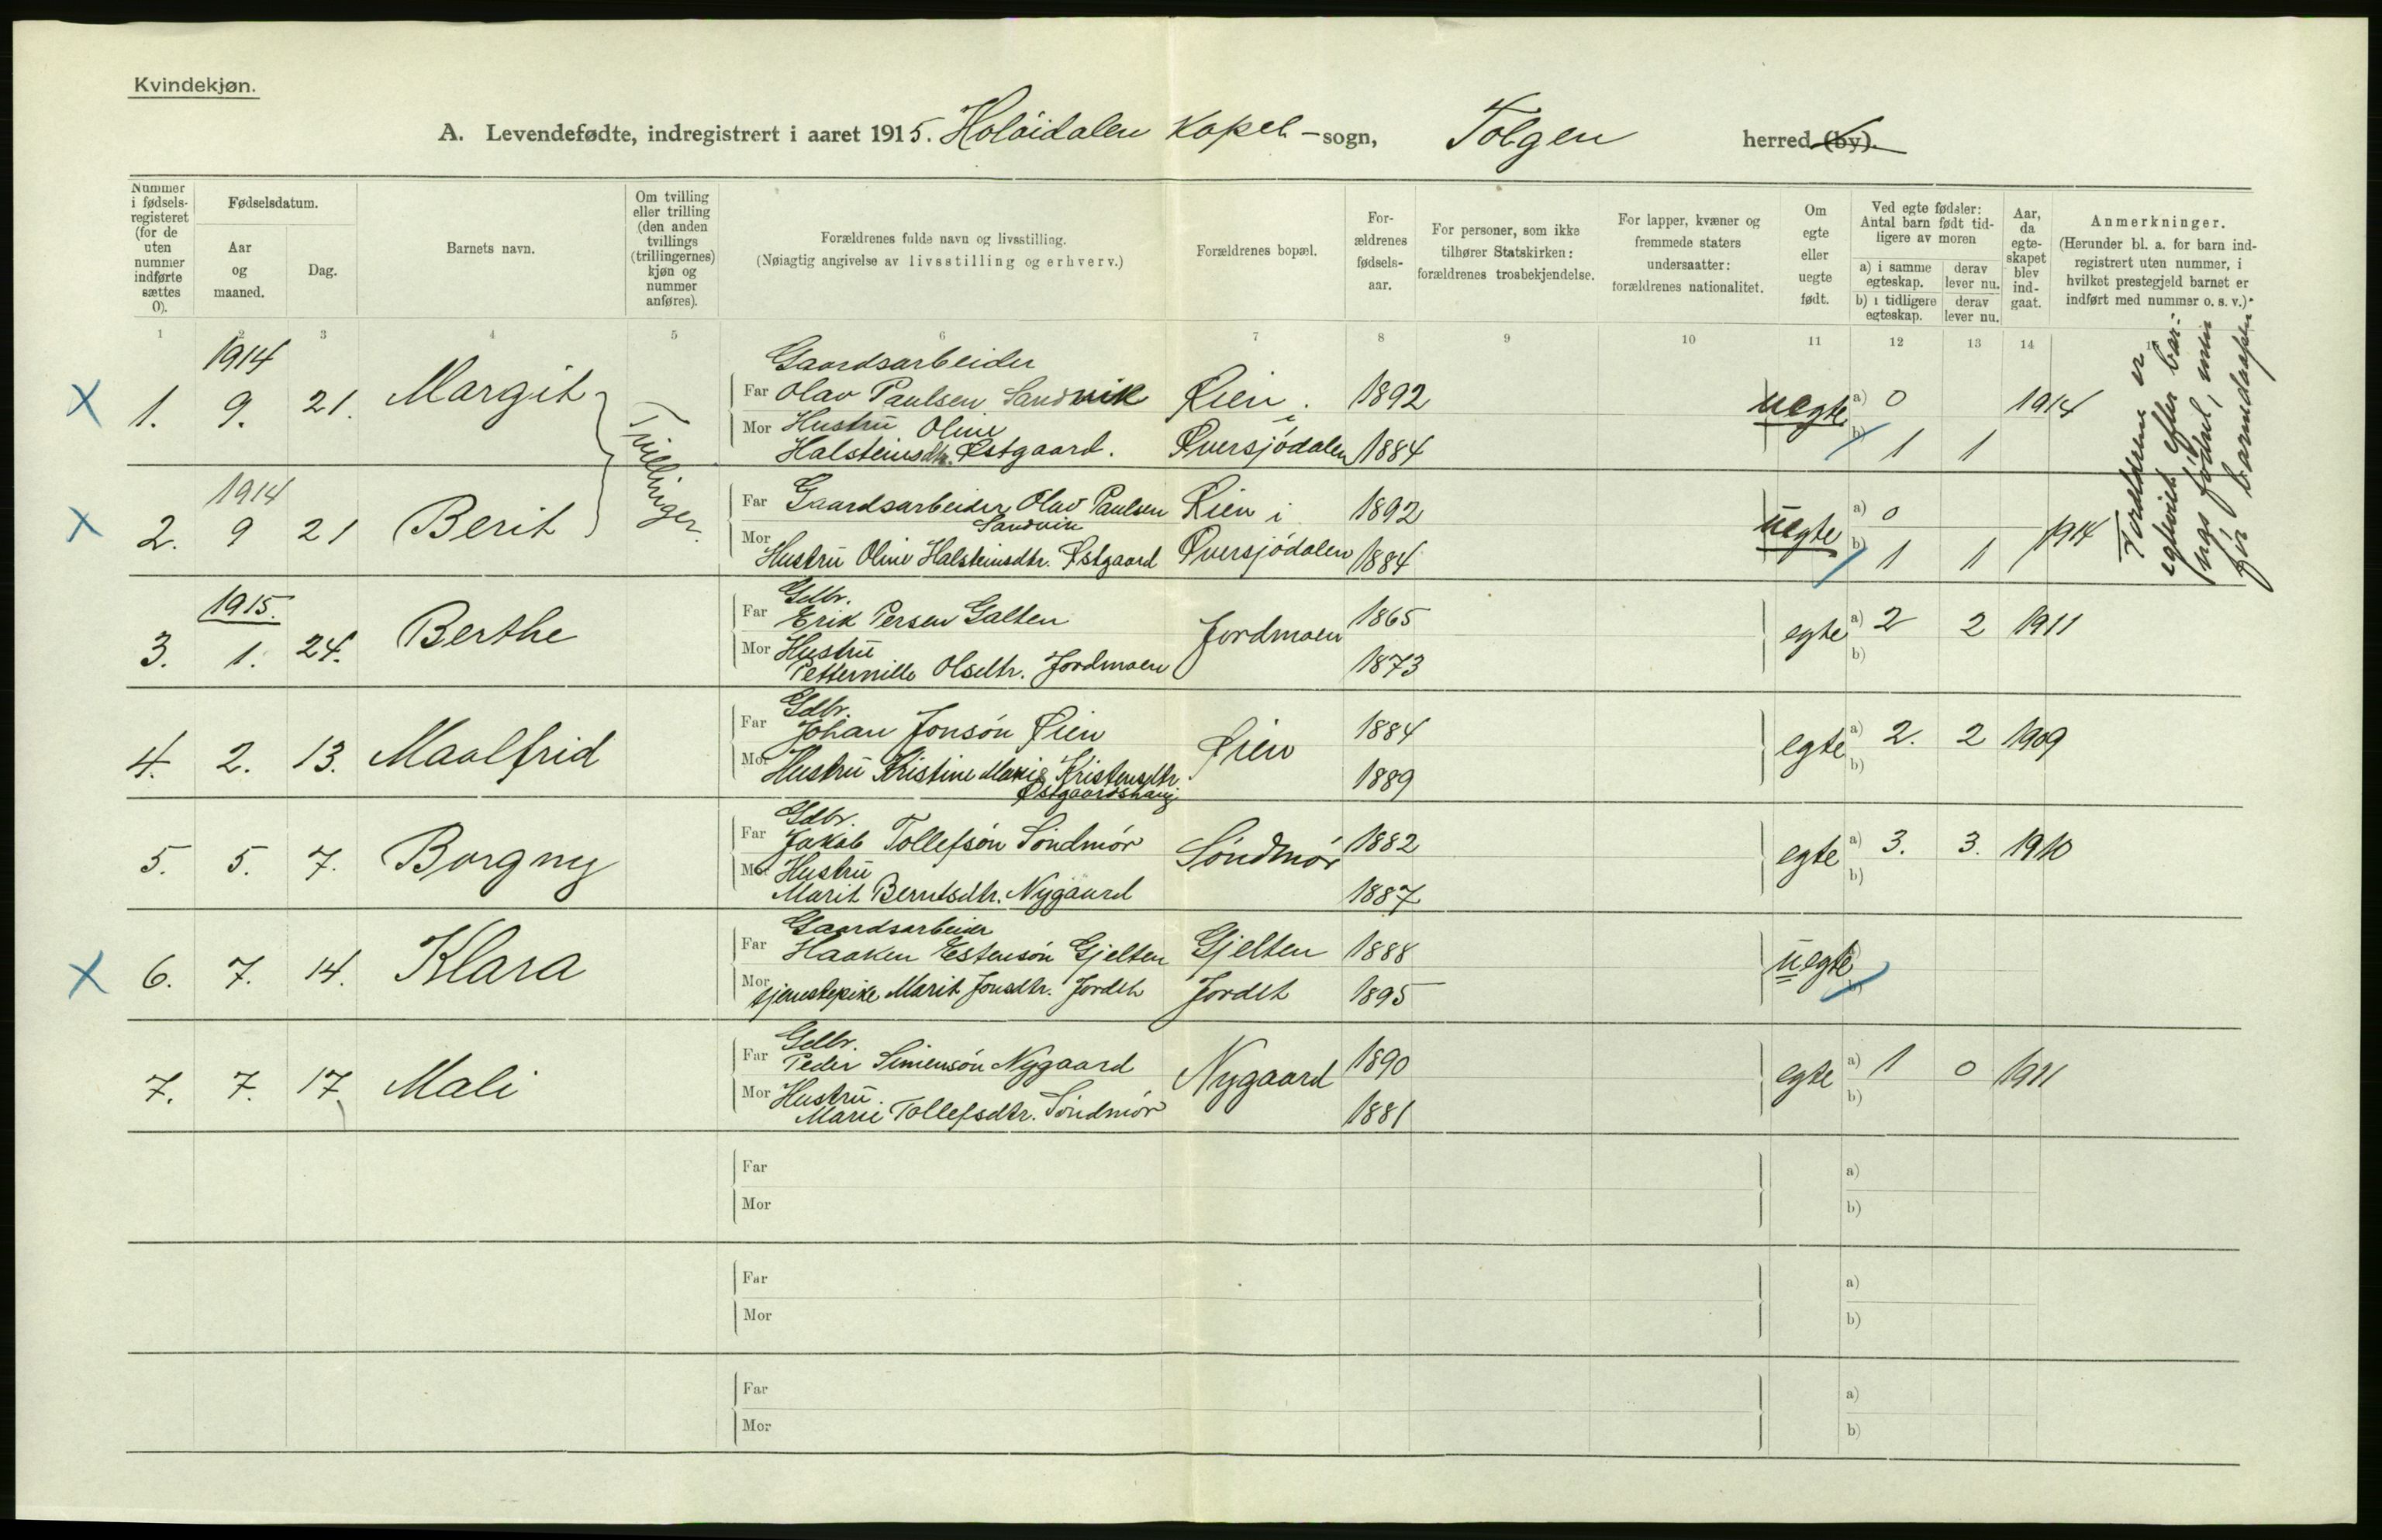 Kvindekjøn.
A. Levendefødte, indregistrert i aaret 1915. Holøidalen Kapel-sogn, Tolgen herred (by).
Nummer i fødsels-registeret (for de uten nummer indførte sættes 0).
Fødselsdatum.
Aar og maaned.
Dag.
Barnets navn.
Om tvilling eller trilling (den anden tvillings (trillingernes) kjøn og nummer anføres).
Forældrenes fulde navn og livsstilling.
(Nøiagtig angivelse av livsstilling og erhverv.)
Forældrenes bopæl.
For-ældrenes fødsels-aar.
For personer, som ikke tilhører Statskirken: forældrenes trosbekjendelse.
For lapper, kvæner og fremmede staters undersaatter: forældrenes nationalitet.
Om egte eller uegte født.
Ved egte fødsler: Antal barn født tid-ligere av moren
a) i samme egteskap. derav lever nu.
b) i tidligere egteskap. derav lever nu.
Aar, da egte-skapet blev ind-gaat.
Anmerkninger.
(Herunder bl. a. for barn ind-registrert uten nummer, i hvilket prestegjeld barnet er indført med nummer o. s. v.)
1 2 3 4 5 6 7 8 9 10 11 12 13 14
1914 Gaardsarbeider
X 1. 9. 21. Margit Far Olav Paulsen Sandvik Øien i 1892 uegte a) 0 1914
Mor Hustru Oline
Halsteinsdtr. Østgaard. Øversjødalen 1884 b) 1 1
Tvillinger.
1914
X 2. 9 21 Berit Far Gaardsarbeider Olav Paulsen Sandvik Øien i 1892 uegte a) 0 1914
Mor Hustru Oline Halsteinsdtr. Østgaard Øversjødalen 1884 b) 1 1
Forældrene er
egteviet efter bar-
nets fødsel, men
før barnedaapen
1915. Gdbr.
3. 1. 24. Berthe Far Erik Persen Galten Jordmoen 1865 egte a) 2 2 1911
Mor Hustru
Petternille Olsdtr. Jordmoen 1873 b)
Gdbr.
4. 2. 13. Maalfrid Far Johan Jonsøn Øien Øien 1884 egte a) 2. 2 1909
Mor Hustru Kristine Marie Kristensdtr. 1889 b)
Østgaardshaug
Gdbr.
5. 5. 7. Borgny Far Jakob Tollefsøn Søndmør Søndmør 1882 egte a) 3. 3. 1910
Mor Hustru
Marit Berntsdtr. Nygaard 1887 b)
Gaardsarbeider
X 6. 7. 14. Klara Far Haaken Estensøn Gjelten Gjelten 1888 uegte a)
Mor tjenestepike Marit Jonsdtr. Jordet Jordet 1895 b)
Gdbr.
7. 7. 17. Mali Far Peder Simensøn Nygaard Nygaard 1890 egte a) 1 0 1911
Mor Hustru
Marie Tollefsdtr. Søndmør 1881 b)
Far a)
Mor b)
Far a)
Mor b)
Far a)
Mor b)